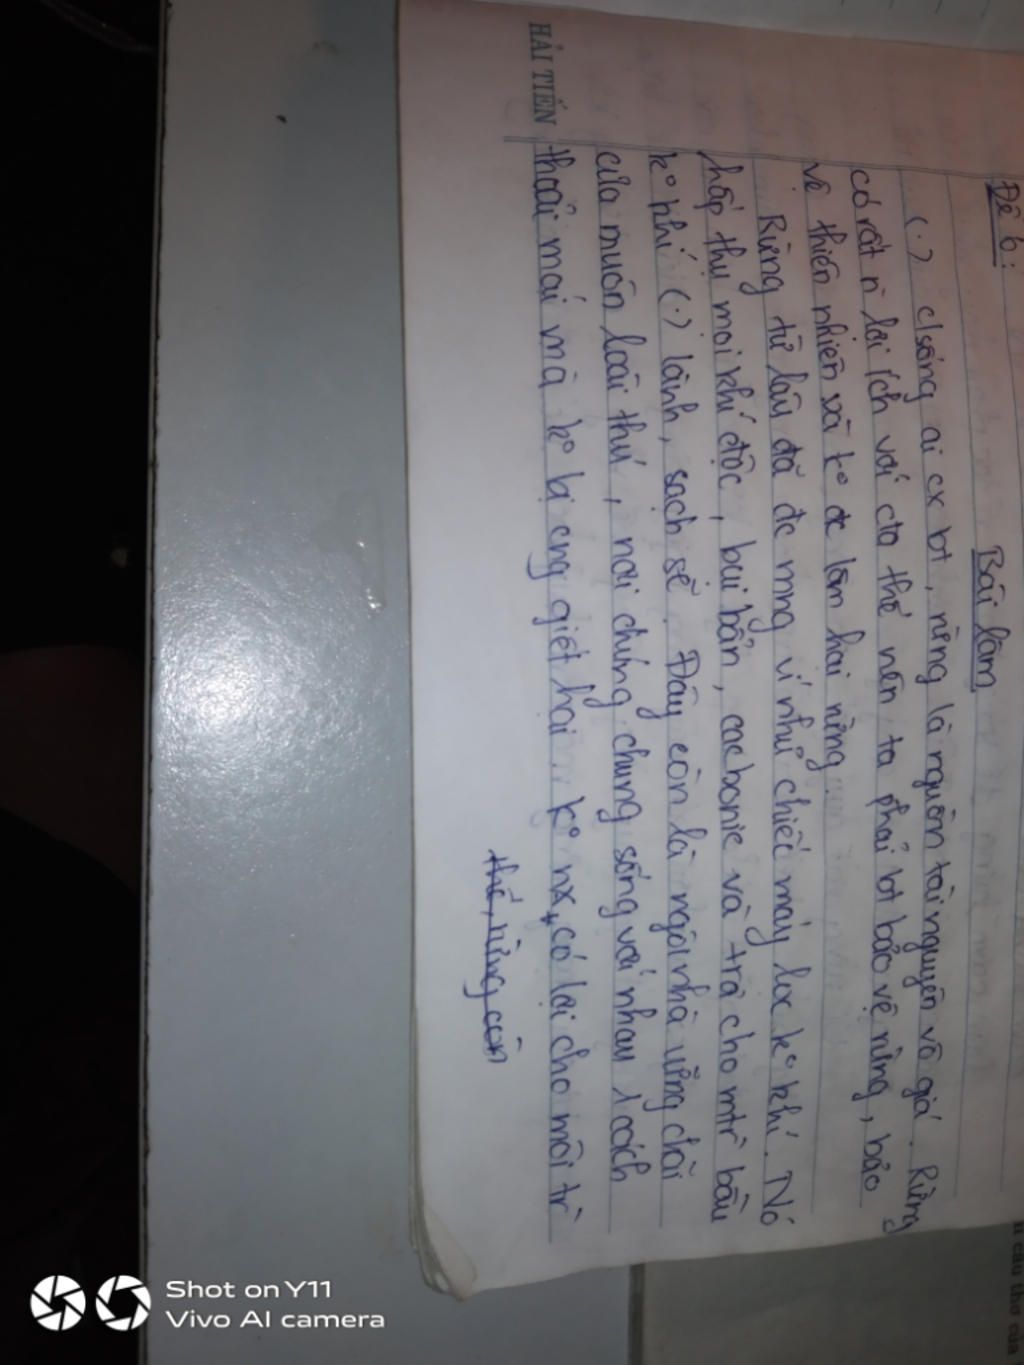 Đề 6:
Bài làm
(.) c/sống ai cx bt, rừng là nguồn tài nguyên vô giá. Rừng
có rất n` lợi ích với cta thế nên ta phải bt bảo vệ rừng, bảo
vệ thiên nhiên và k° đc làm hại rừng
Rừng từ lâu đã đc mng ví như chiếc máy lọc k° khí. Nó
hấp thụ mọi khí độc, bụi bẩn, cacbonic và trả cho mtr` bầu
k° khí (.) lành, sạch sẽ. Đây còn là ngôi nhà vững chãi
của muôn loài thú, nơi chúng chung sống với nhau 1 cách
thoải mái mà k° bị cng giết hại. K° nx, có lợi cho môi tr`
thế, rừng còn
HẢI TIẾN
câu thơ của
Shot on Y11
Vivo AI camera